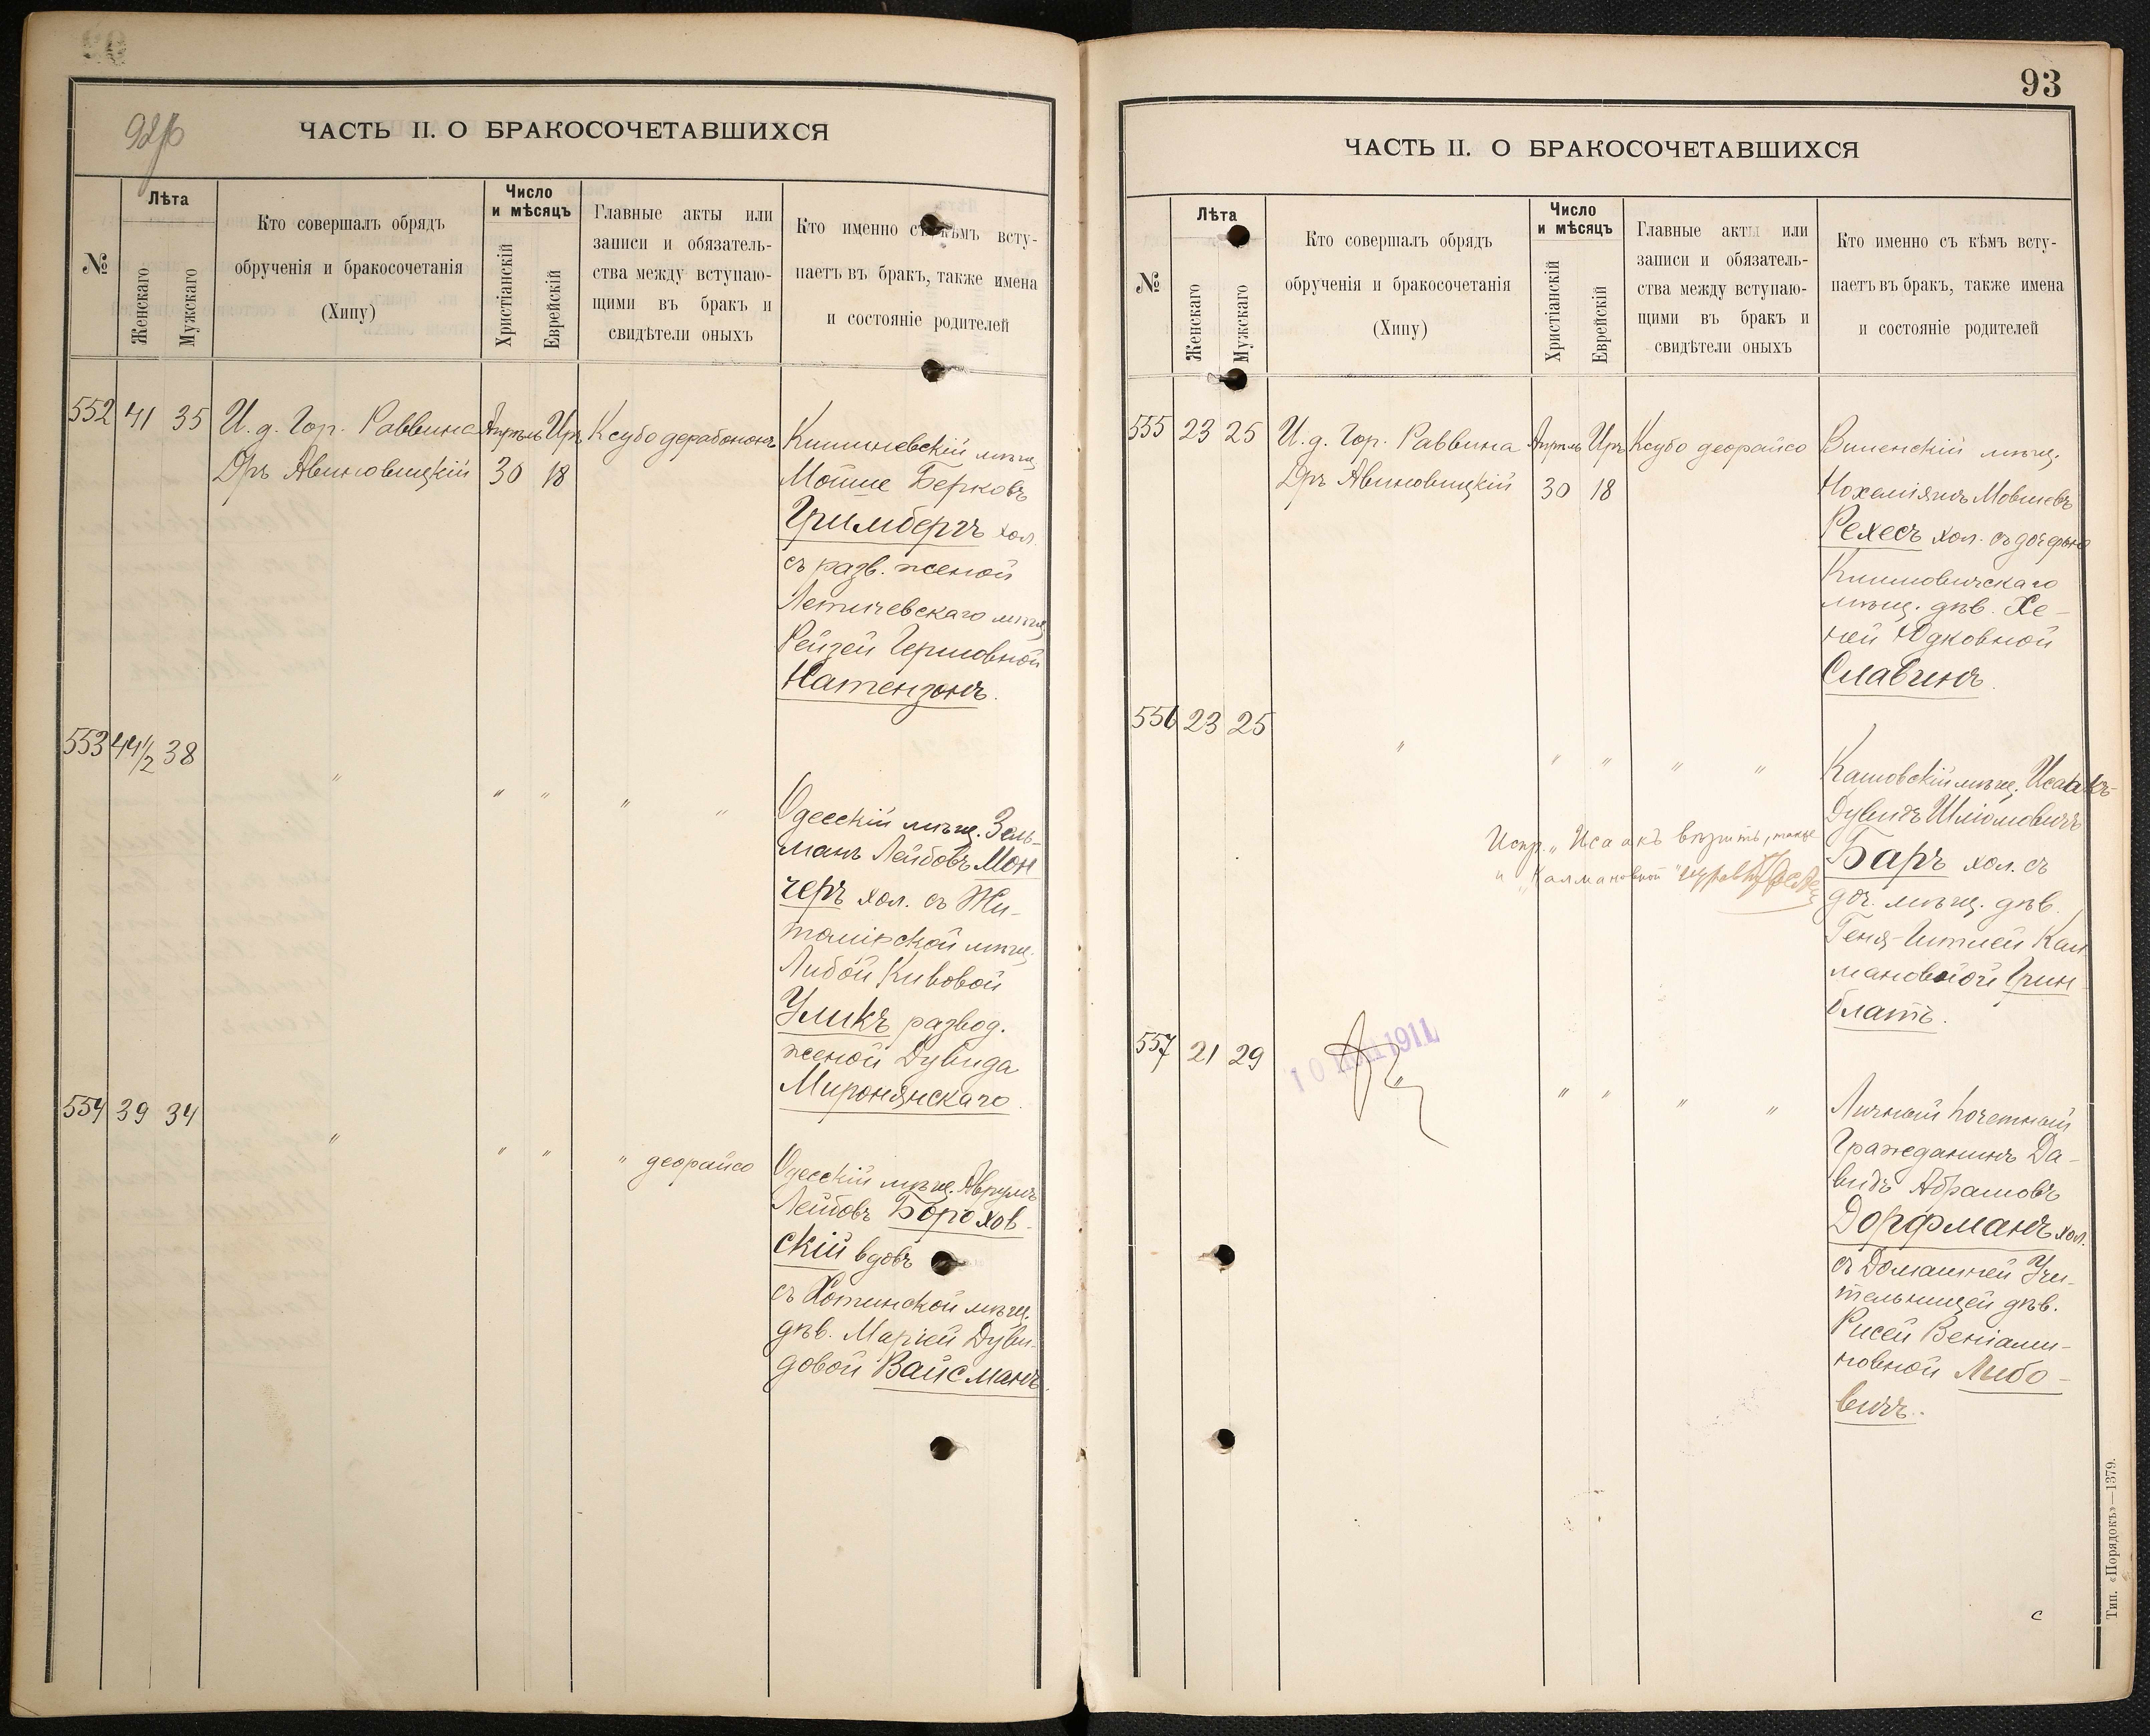 92об
ЧАСТЬ II. О БРАКОСОЧЕТАВШИХСЯ
№
Лѣта
Женскаго
Мужскаго
Кто совершалъ обрядъ
обрученія и бракосочетанія
(Хипу)
Число
и мѣсяцъ
Христіанскій
Еврейскій
Главные акты или
записи и обязатель-
ства между вступаю-
щими въ бракъ и
свидѣтели оныхъ
Кто именно съ кѣмъ всту-
паетъ въ бракъ, также имена
и состояніе родителей
552 41 35 И. д. Гор. Раввина Апрѣль Иръ Ксубо дерабононъ
Дръ Авиновицкій 30 18
Кишиневскій мѣщ.
Мойше Берковъ
Гримбергъ хол.
съ разв. женой
Летичевскаго мѣщ.
Рейзей Гершовной
Натензонъ.
553 44½ 38 " " " " "
Одесскій мѣщ. Заль-
манъ Лейбовъ Мон
черъ хол. съ Жи-
томірской мѣщ.
Либой Кивовой
Уликъ развод.
женой Дувида
Миронянскаго.
554 39 34 " " " " деорайсо
Одесскій мѣщ. Аврумъ
Лейбовъ Борохов-
скій вдовъ
съ Хотинской мѣщ.
дѣв. Маріей Дуви-
довой Вайсманъ.
93
ЧАСТЬ II. О БРАКОСОЧЕТАВШИХСЯ
№
Лѣта
Женскаго
Мужскаго
Кто совершалъ обрядъ
обрученія и бракосочетанія
(Хипу)
Число
и мѣсяцъ
Христіанскій
Еврейскій
Главные акты или
записи и обязатель-
ства между вступаю-
щими въ бракъ и
свидѣтели оныхъ
Кто именно съ кѣмъ всту-
паетъ въ бракъ, также имена
и состояніе родителей
555 23 25 И. д. Гор. Раввина Апрѣль Иръ Ксубо деорайсо
Дръ Авиновицкій 30 18
Виленскій мѣщ.
Нохеміяшъ Мовшевъ
Рехесъ хол. съ дочерью
Климовичскаго
мѣщ. дѣв. Хе-
ней Юдковной
Славинъ.
556 23 25 " " " " "
Исаакъ-
Дувидъ Шліомовичъ
Баръ хол. съ
доч. мѣщ. дѣв.
Геня-Итлей Кал
мановной Грин-
блатъ.
Испр. „Исаакъ вѣрить, также
и „Калмановной"
557 21 29 " " " " "
10 1911
Личный Почетный
Гражданинъ Да-
видъ Абрамовъ
Дорфманъ хол.
съ Домашней Учи-
тельницей дѣв.
Рисей Веніами-
новной Либо-
вичъ.
с
Тип. «Порядокъ»—1379.